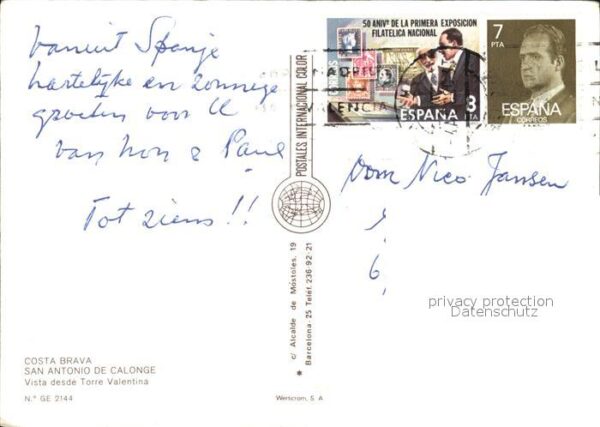 Vanuit Spanje
hartelijke en zonnige
groeten voor U
van Non & Paul
Tot ziens !!
COSTA BRAVA
SAN ANTONIO DE CALONGE
Vista desde Torre Valentina
N.º GE 2144
POSTALES INTERNACIONAL COLOR
c/ Alcalde de Móstoles, 19
Barcelona - 25 Teléf. 236-92-21
Werticrom, S. A
50 ANIVº DE LA PRIMERA EXPOSICION
FILATELICA NACIONAL
ESPAÑA
8
PTA
7
PTA
ESPAÑA
CORREOS
MADRID
VALENCIA
Dom Nico Jansen
6,
privacy protection
Datenschutz